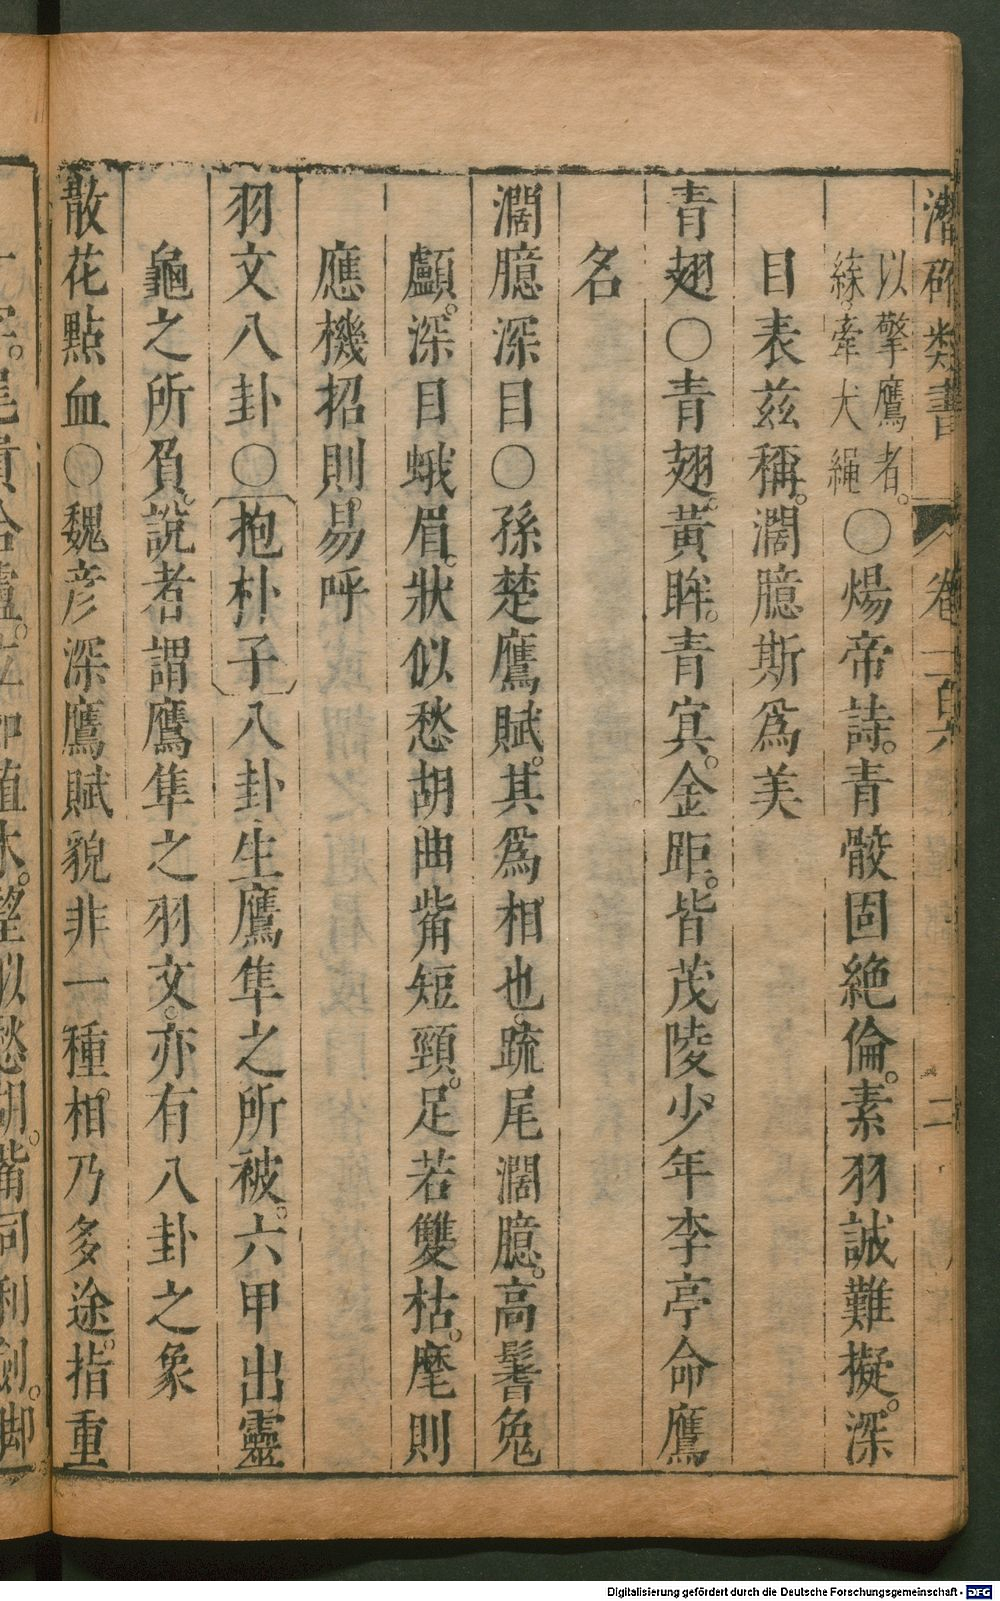 潛確類書 卷一百六 二
以擎鷹者。
絲。牽犬繩
〇煬帝詩。青骹固絶倫。素羽誠難擬。深
目表茲稱。濶臆斯爲美
青翅〇青翅。黃眸。青㝠。金距。皆茂陵少年李亭命鷹
名
濶臆深目〇孫楚鷹賦。其爲相也。疏尾濶臆。高髻兔
顱。深目蛾眉。狀似愁胡曲觜短頸。足若雙枯。麾則
應機招則易呼
羽文八卦〇抱朴子八卦生鷹隼之所被。六甲出靈
龜之所負。說者謂鷹隼之羽文。亦有八卦之象
散花點血〇魏彦深鷹賦貌非一種。相乃多途。指重
Digitalisierung gefördert durch die Deutsche Forschungsgemeinschaft - DFG